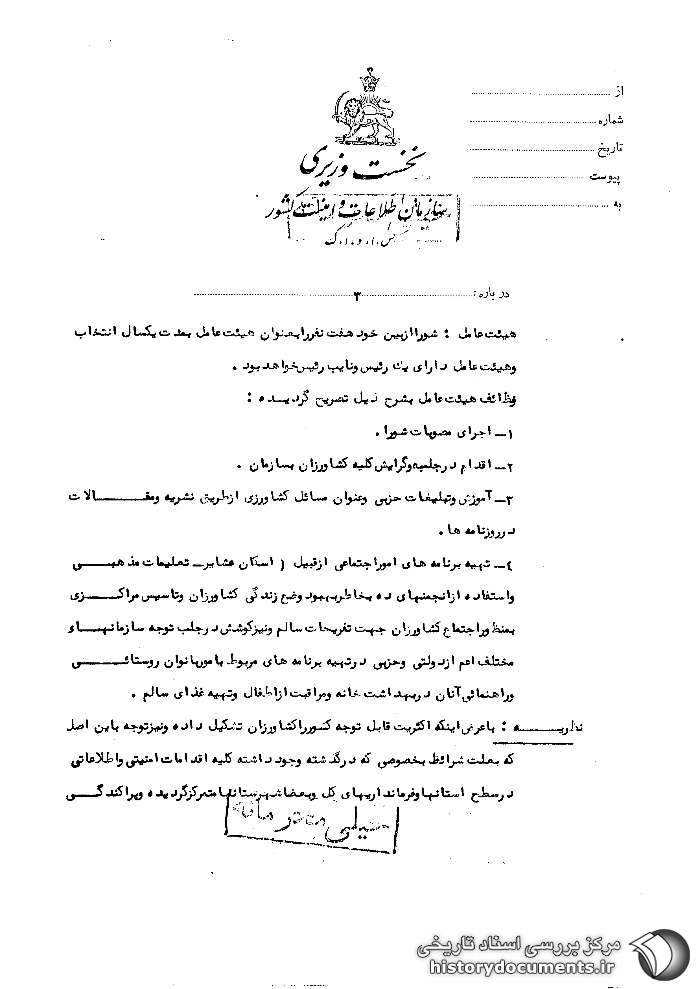 از
شماره
تاریخ
پیوست
به
نخست وزیری
سازمان اطلاعات و امنیت کشور
س.ا.و.ا.ک
درباره: ۳
هیئت عامل : شورا از بین خود هفت نفر را بعنوان هیئت عامل بمدت یکسال انتخاب
وهیئت عامل دارای یك رئیس ونایب رئیس خواهد بود .
وظائف هیئت عامل بشرح ذیل تصریح گردیده :
۱- اجرای مصوبات شورا .
۲- اقدام در جلب وگرایش کلیه کشاورزان بسازمان .
۳- آموزش وتبلیغات حزبی وعنوان مسائل کشاورزی ازطریق نشریه ومقالات
درروزنامه ها .
٤- تهیه برنامه های امور اجتماعی ازقبیل ( اسکان عشایر- تعلیمات مذهبی
واستفاده ازانجمنهای ده بخاطر بهبود وضع زندگی کشاورزان وتاسیس مراکزی
بمنظور اجتماع کشاورزان جهت تفریحات سالم ونیز کوشش در جلب توجه سازمانهاء
مختلف اعم ازدولتی وحزبی درتهیه برنامه های مربوط بامور بانوان روستائی
وراهنمائی آنان دربهداشت خانه ومراقبت ازاطفال وتهیه غذای سالم .
نظریه : باعرض اینکه اکثریت قابل توجه کشور را کشاورزان تشکیل داده ونیز توجه باین اصل
که بعلت شرائط بخصوصی که درگذشته وجود داشته کلیه اقدامات امنیتی واطلاعاتی
درسطح استانها وفرمانداریهای کل وبعضا شهرستانها متمرکز گردیده وپراکندگی
خیلی محرمانه
مرکز بررسی اسناد تاریخی
historydocuments.ir